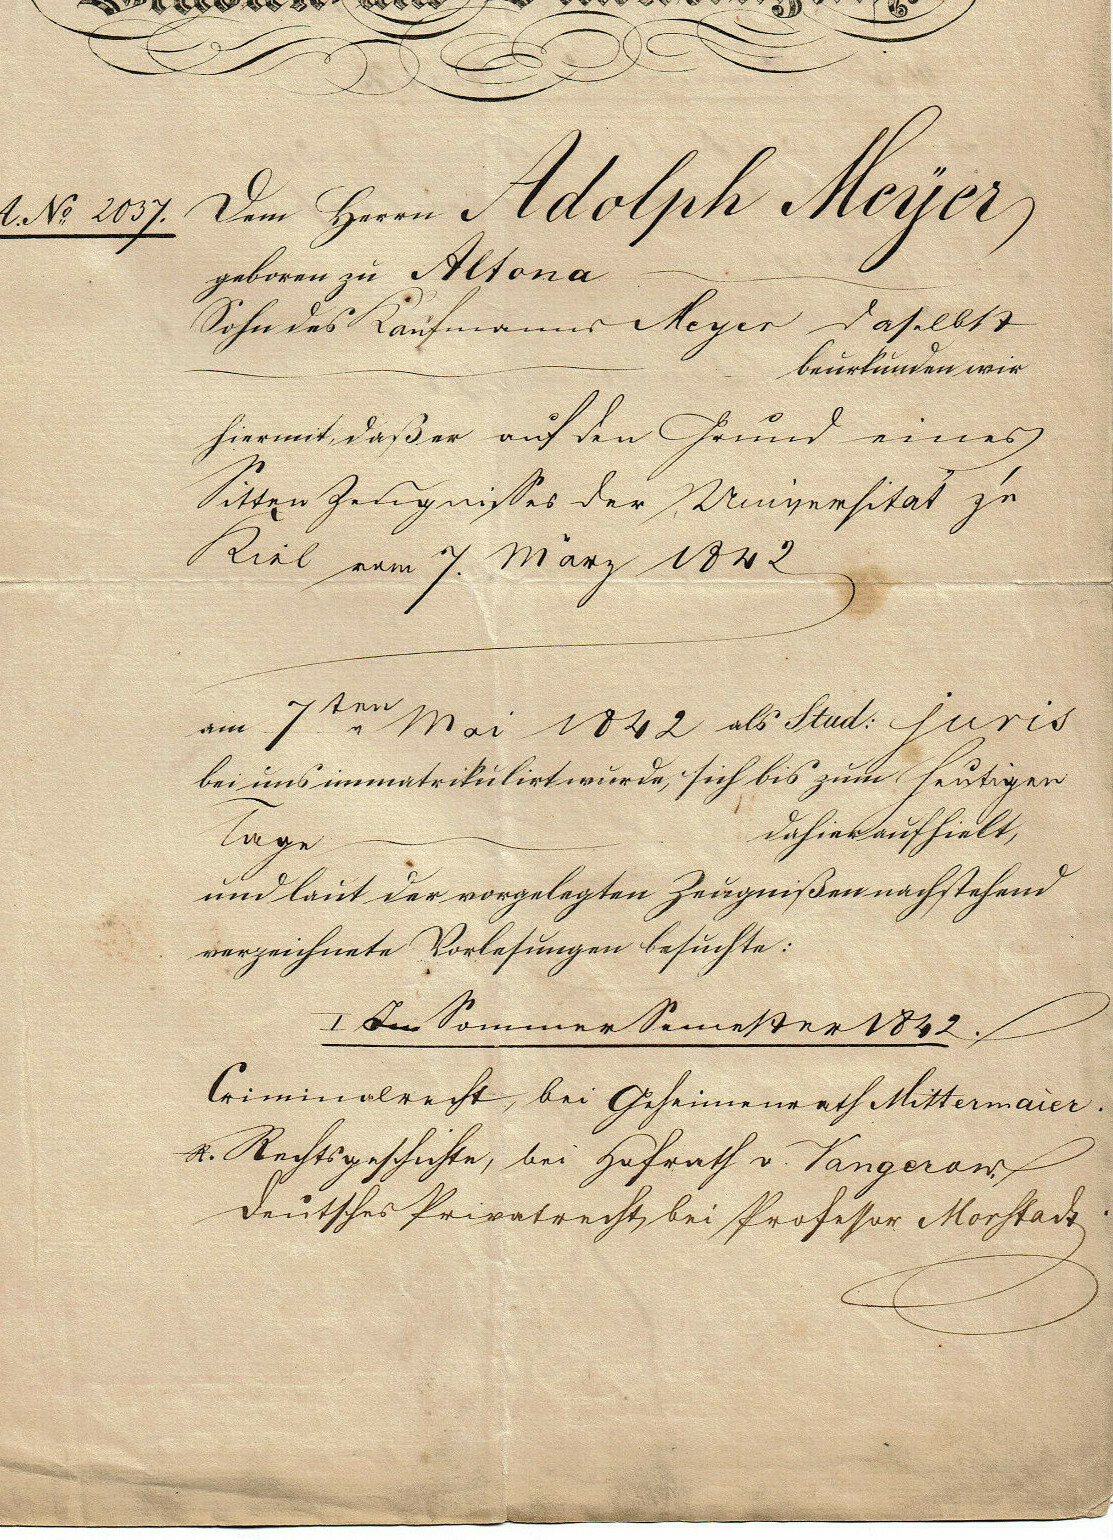 A. No 2037.
Dem Herrn Adolph Meÿer
geboren zu Altona
Sohn des Kaufmanns Meyer daselbst
beurkunden wir
hiermit, daß er auf den Grund eines
Sitten Zeugnisses der Universität zu
Kiel vom 7. März 1842
am 7ten Mai 1842 als Stud: juris
bei uns immatrikulirt wurde, sich bis zum heutigen
Tage dahier aufhielt,
und laut der vorgelegten Zeugnißen nachstehend
verzeichnete Vorlesungen besuchte:
I Im Sommer Semester 1842.
Criminalrecht, bei Geheimenrath Mittermaier.
R. Rechtsgeschichte, bei Hofrath v. Vangerow.
Deutsches Privatrecht, bei Professor Morstadt.